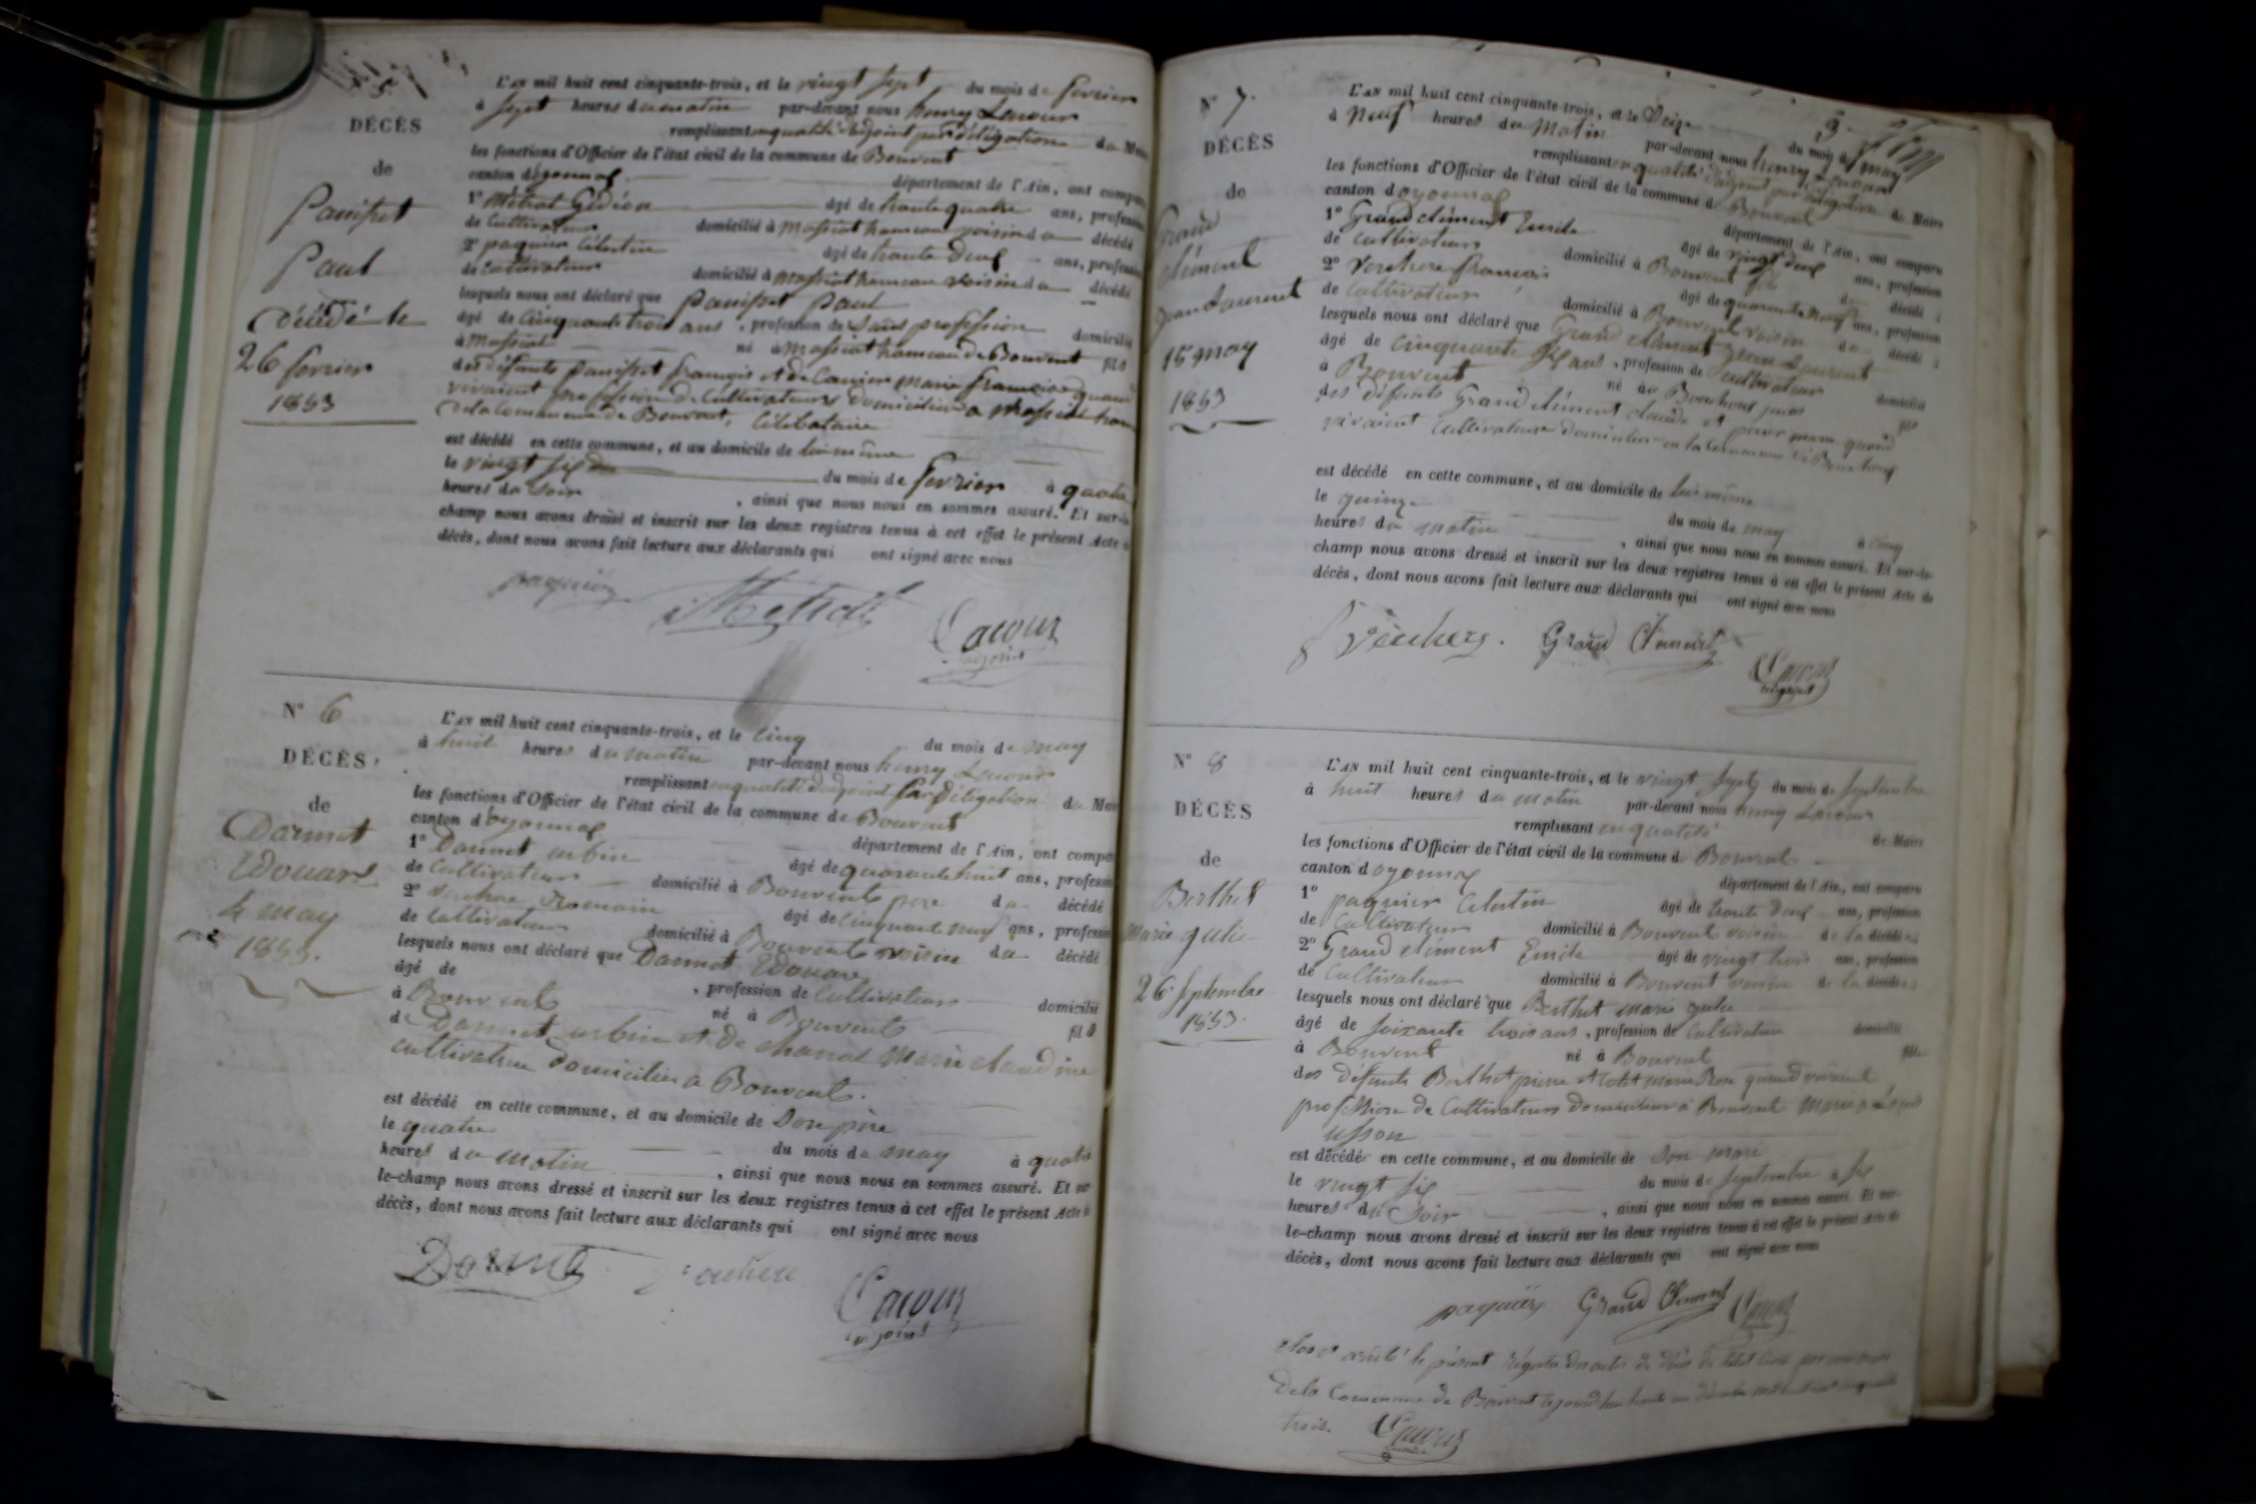 DÉCÈS
de
Panisset
Paul
Décédé le
26 fevrier
1853
L'AN mil huit cent cinquante-trois, et le vingt sept du mois de fevrier
à sept heures du matin par-devant nous henry Lacour
remplissant en qualité d'adjoint par délégation du Maire
les fonctions d'Officier de l'état civil de la commune de Bouvent
canton d'oyonnax département de l'Ain, ont comparu
1° Métrat Gédéon âgé de trente quatre ans, profession
de Cultivateur domicilié à Massiat hameau voisin du décédé
2° paquier Célestin âgé de trente deux ans, profession
de Cultivateur domicilié à Massiat hameau voisin du décédé
lesquels nous ont déclaré que Panisset Paul
âgé de cinquante trois ans, profession de Sans profession domicilié
à Massiat né à Massiat hameau de Bouvent fils
des défunts panisset françois et de marie françoise quand
vivaient profession de Cultivateurs domiciliés à Massiat
de la Commune de Bouvent, Célibataire
est décédé en cette commune, et au domicile de lui même
le vingt six du mois de fevrier à quatre
heures du soir, ainsi que nous nous en sommes assuré. Et sur-le-
champ nous avons dressé et inscrit sur les deux registres tenus à cet effet le présent Acte de
décès, dont nous avons fait lecture aux déclarants qui ont signé avec nous
paquier Métrat Lacour
adjoint
N° 6
DÉCÈS
de
Darmet
Edouard
4 may
1853.
L'AN mil huit cent cinquante-trois, et le cinq du mois de may
à huit heures du matin par-devant nous henry Lacour
remplissant en qualité d'adjoint par délégation du Maire
les fonctions d'Officier de l'état civil de la commune de Bouvent
canton d'oyonnax département de l'Ain, ont comparu
1° Darmet urbin âgé de quarante huit ans, profession
de Cultivateur domicilié à Bouvent pere du décédé
2° Verchere Romain âgé de cinquante neuf ans, profession
de Cultivateur domicilié à Bouvent voisin du décédé
lesquels nous ont déclaré que Darmet Edouard
âgé de , profession de Cultivateur domicilié
à Bouvent né à Bouvent fils
de Darmet urbin et de Marie claudine
cultivateurs domiciliés a Bouvent.
est décédé en cette commune, et au domicile de Son père
le quatre du mois de may à quatre
heures du matin, ainsi que nous nous en sommes assuré. Et sur-
le-champ nous avons dressé et inscrit sur les deux registres tenus à cet effet le présent Acte de
décès, dont nous avons fait lecture aux déclarants qui ont signé avec nous
Darmet Lacour
adjoint
N° 7.
DÉCÈS
de
Grand
clément
jean Laurent
15 may
1853
L'AN mil huit cent cinquante-trois, et le Seize du mois de may
à Neuf heures du Matin par-devant nous henry Lacour
remplissant en qualité d'adjoint par délégation du Maire
les fonctions d'Officier de l'état civil de la commune de Bouvent
canton d'oyonnax département de l'Ain, ont comparu
1° Grand clément Emile âgé de vingt deux ans, profession
de cultivateur domicilié à Bouvent fils du décédé
2° Verchere françois âgé de quarante neuf ans, profession
de Cultivateur domicilié à Bouvent voisin du décédé
lesquels nous ont déclaré que Grand clément jean Laurent
âgé de cinquante ans, profession de cultivateur domicilié
à Bouvent né à fils
des défunts Grand clément claude et quand
vivaient Cultivateurs domiciliés en la commune de
est décédé en cette commune, et au domicile de lui même
le quinze du mois de may à cinq
heures du matin, ainsi que nous nous en sommes assuré. Et sur-le-
champ nous avons dressé et inscrit sur les deux registres tenus à cet effet le présent Acte de
décès, dont nous avons fait lecture aux déclarants qui ont signé avec nous
Grand Clément Lacour
adjoint
N° 8
DÉCÈS
de
Berthet
Marie julie
26 septembre
1853.
L'AN mil huit cent cinquante-trois, et le vingt sept du mois de septembre
à huit heures du matin par-devant nous henry Lacour
remplissant en qualité de Maire
les fonctions d'Officier de l'état civil de la commune de Bouvent
canton d'oyonnax département de l'Ain, ont comparu
1° paquier Célestin âgé de trente deux ans, profession
de Cultivateur domicilié à Bouvent voisin de la décédée
2° Grand clément Emile âgé de vingt trois ans, profession
de Cultivateur domicilié à Bouvent voisin de la décédée
lesquels nous ont déclaré que Berthet marie julie
âgé de soixante trois ans, profession de Cultivateur domicilié
à Bouvent né à Bouvent fille
des défunts Berthet pierre et quand vivaient
profession de Cultivateurs domiciliés à Bouvent
est décédée en cette commune, et au domicile de Son mari
le vingt six du mois de septembre à six
heures du soir, ainsi que nous nous en sommes assuré. Et sur-
le-champ nous avons dressé et inscrit sur les deux registres tenus à cet effet le présent Acte de
décès, dont nous avons fait lecture aux déclarants qui ont signé avec nous
paquier Grand Clément Lacour
clos et arrêté le présent régistre des actes de décès de l'état civil par nous maire
de la Commune de Bouvent
trois. Lacour